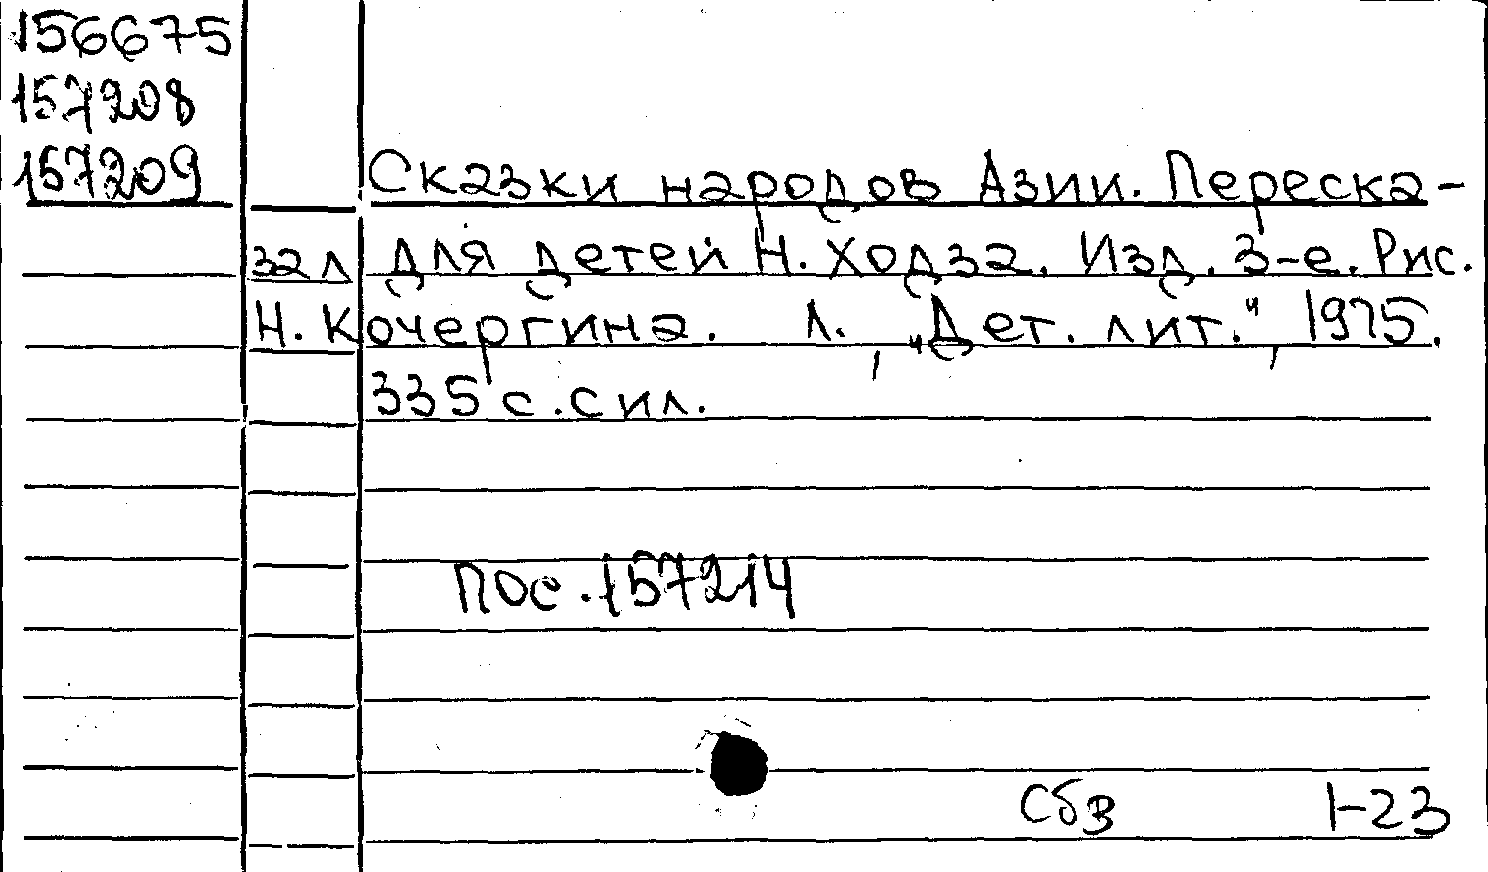 156675
157208
157209
Сказки народов Азии. Переска-
зал для детей Н. Ходза. Изд. 3-е. Рис.
Н. Кочергина. Л., „Дет. лит.", 1975.
335 с. с ил.
пос. 157214
1-23